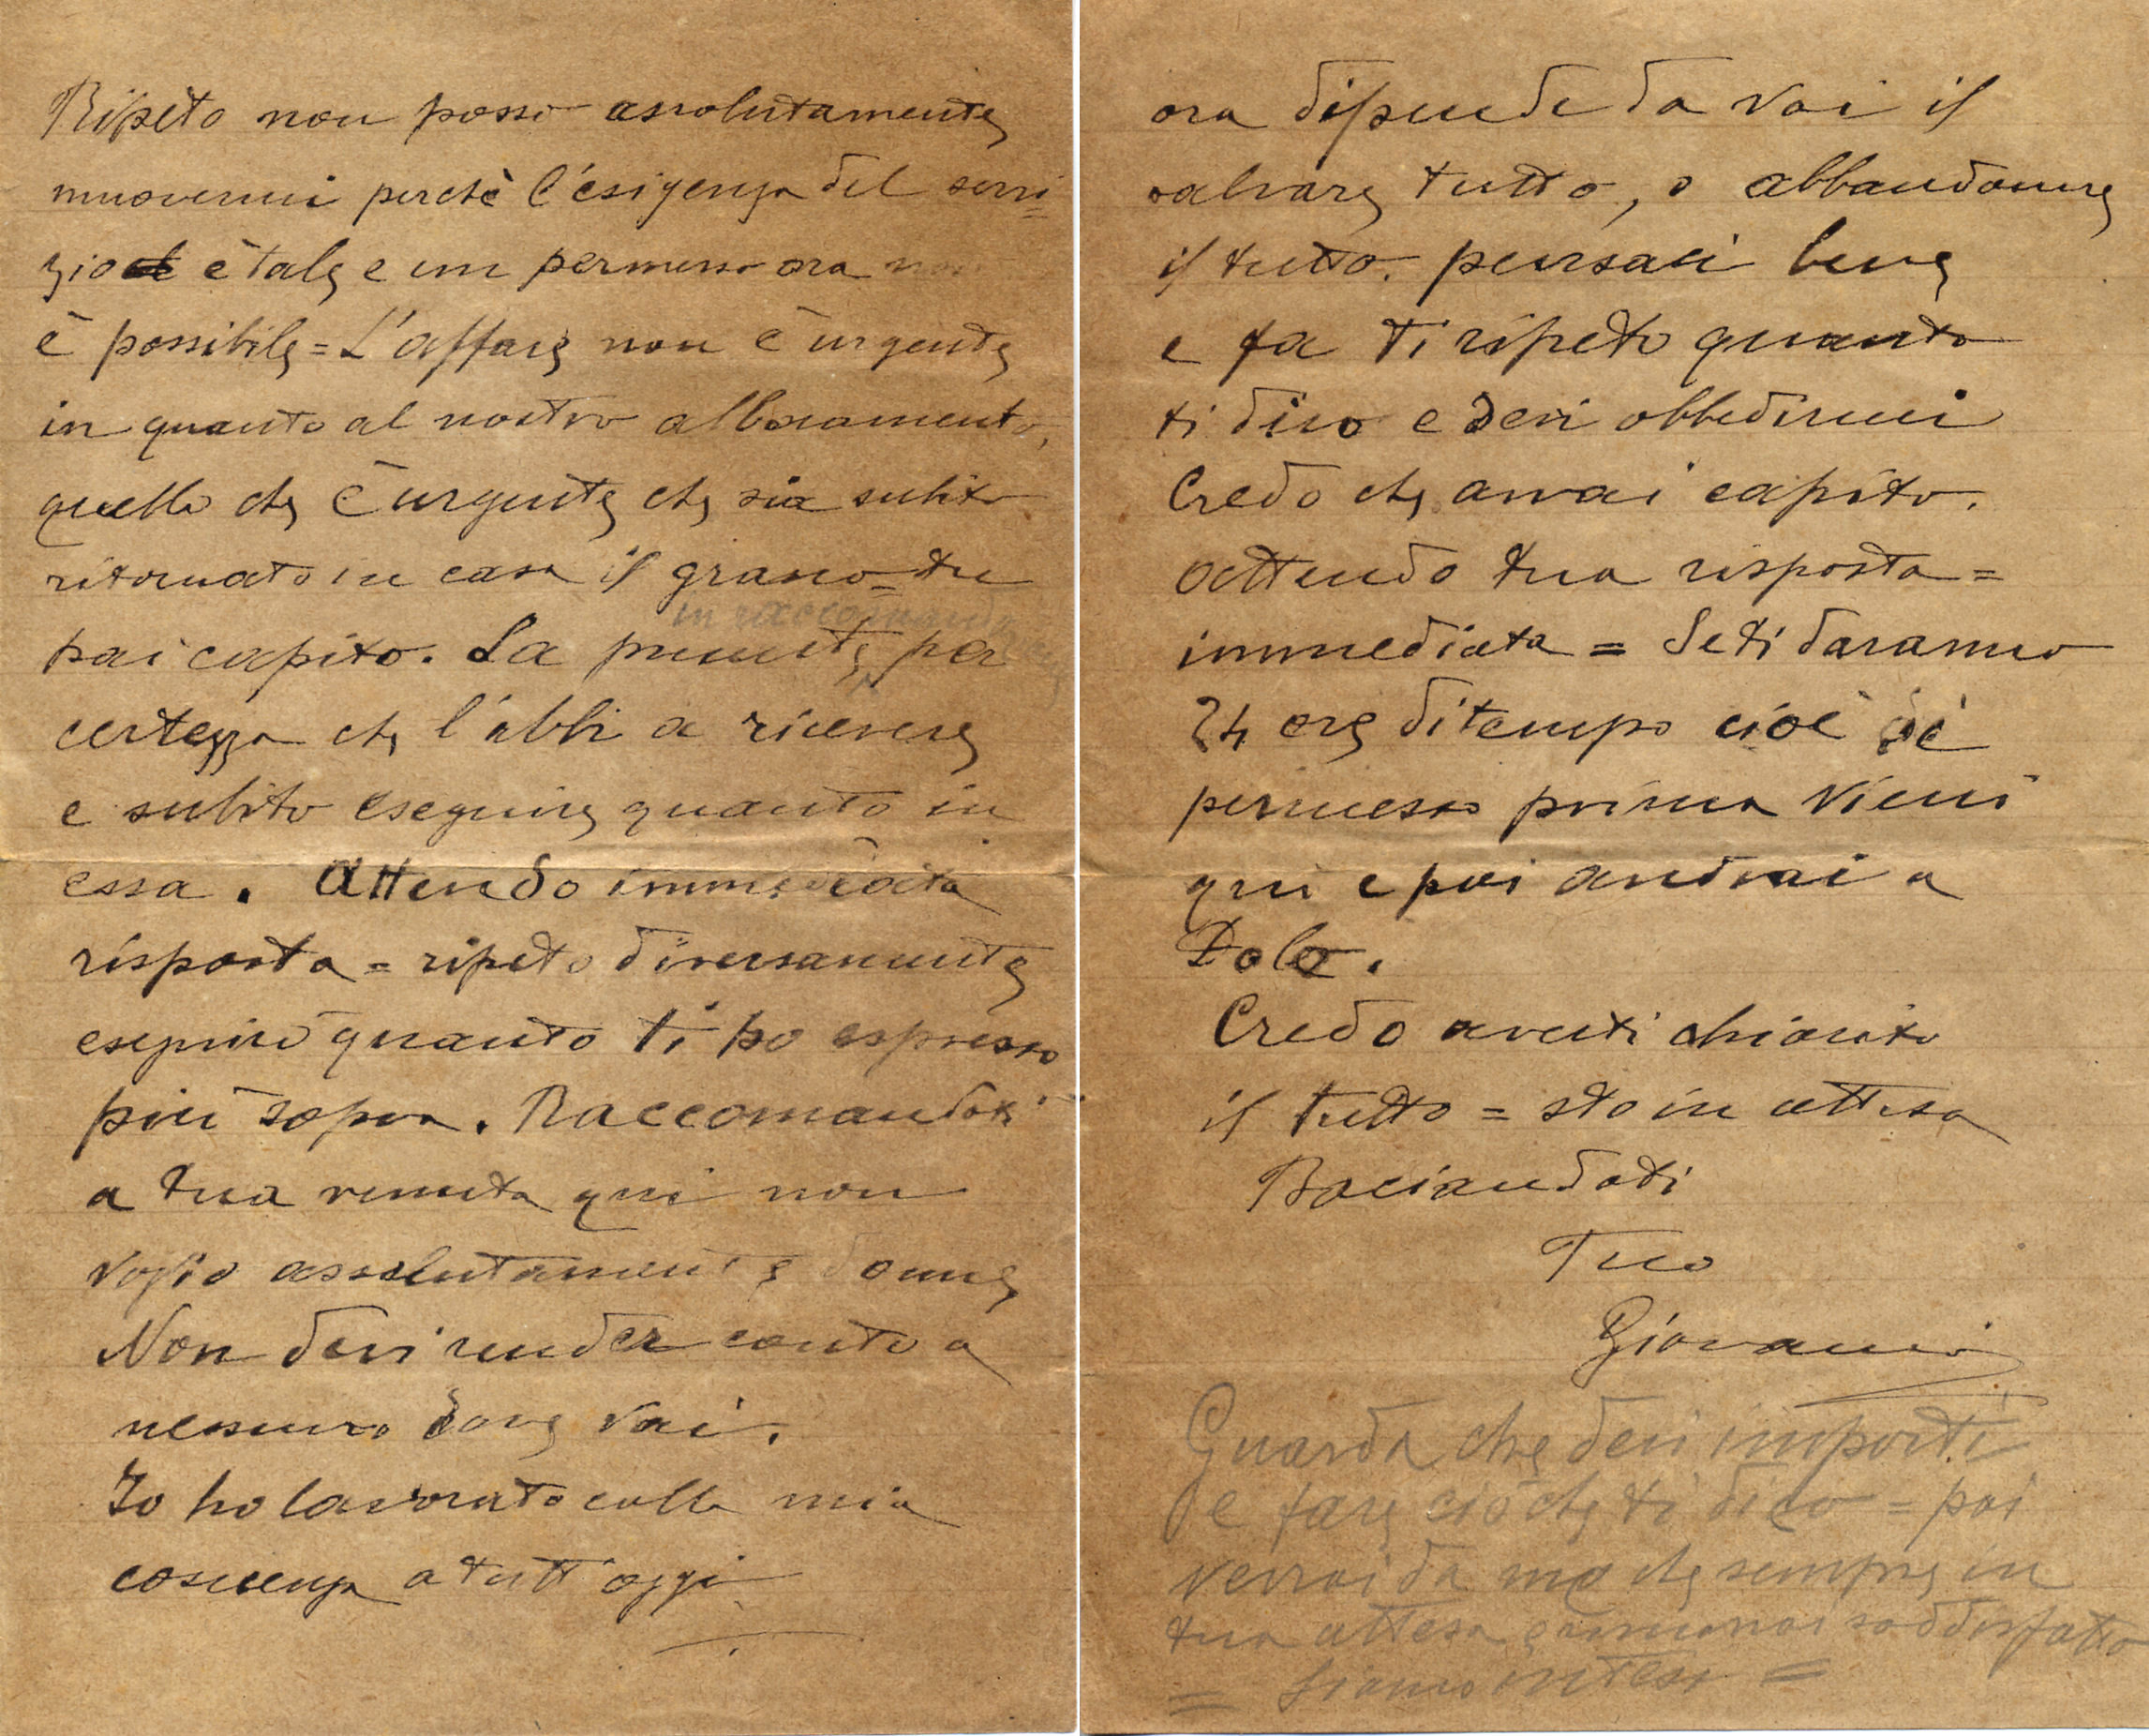 Ripeto non posso assolutamente
muovermi perchè l'esigenza del servi=
zio è tale e un permesso ora non
è possibile = L'affare non è urgente
in quanto al nostro abboccamento,
quello che è urgente che sia subito
ritornato in casa il grano = tu
in raccomandazione
hai capito. La presente per
certezza che l'abbi a ricevere
e subito eseguire quanto in
essa. Attendo immediata
risposta = ripeto diversamente
eseguirò quanto ti ho espresso
più sopra. Raccomandoti
a tua venuta qui non
voglio assolutamente donne
Non devi render conto a
nessuno dove vai.
Io ho lavorato colla mia
coscienza a tutt'oggi
ora dipende da voi il
salvare tutto, o abbandonare
il tutto. pensaci bene
e fa ti ripeto quanto
ti dico e devi obbedirmi
Credo che avrai capito.
Attendo tua risposta =
immediata = Se ti daranno
24 ore di tempo cioè di
permesso prima vieni
qui e poi andrai a
Dolo.
Credo averti chiarito
il tutto = sto in attesa
Baciandoti
Tuo
Giovanni
Guarda che devi importi
e fare ciò che ti dico = poi
verrai da me che sempre in
tua attesa e rimarrai soddisfatto
= siamo intesi =